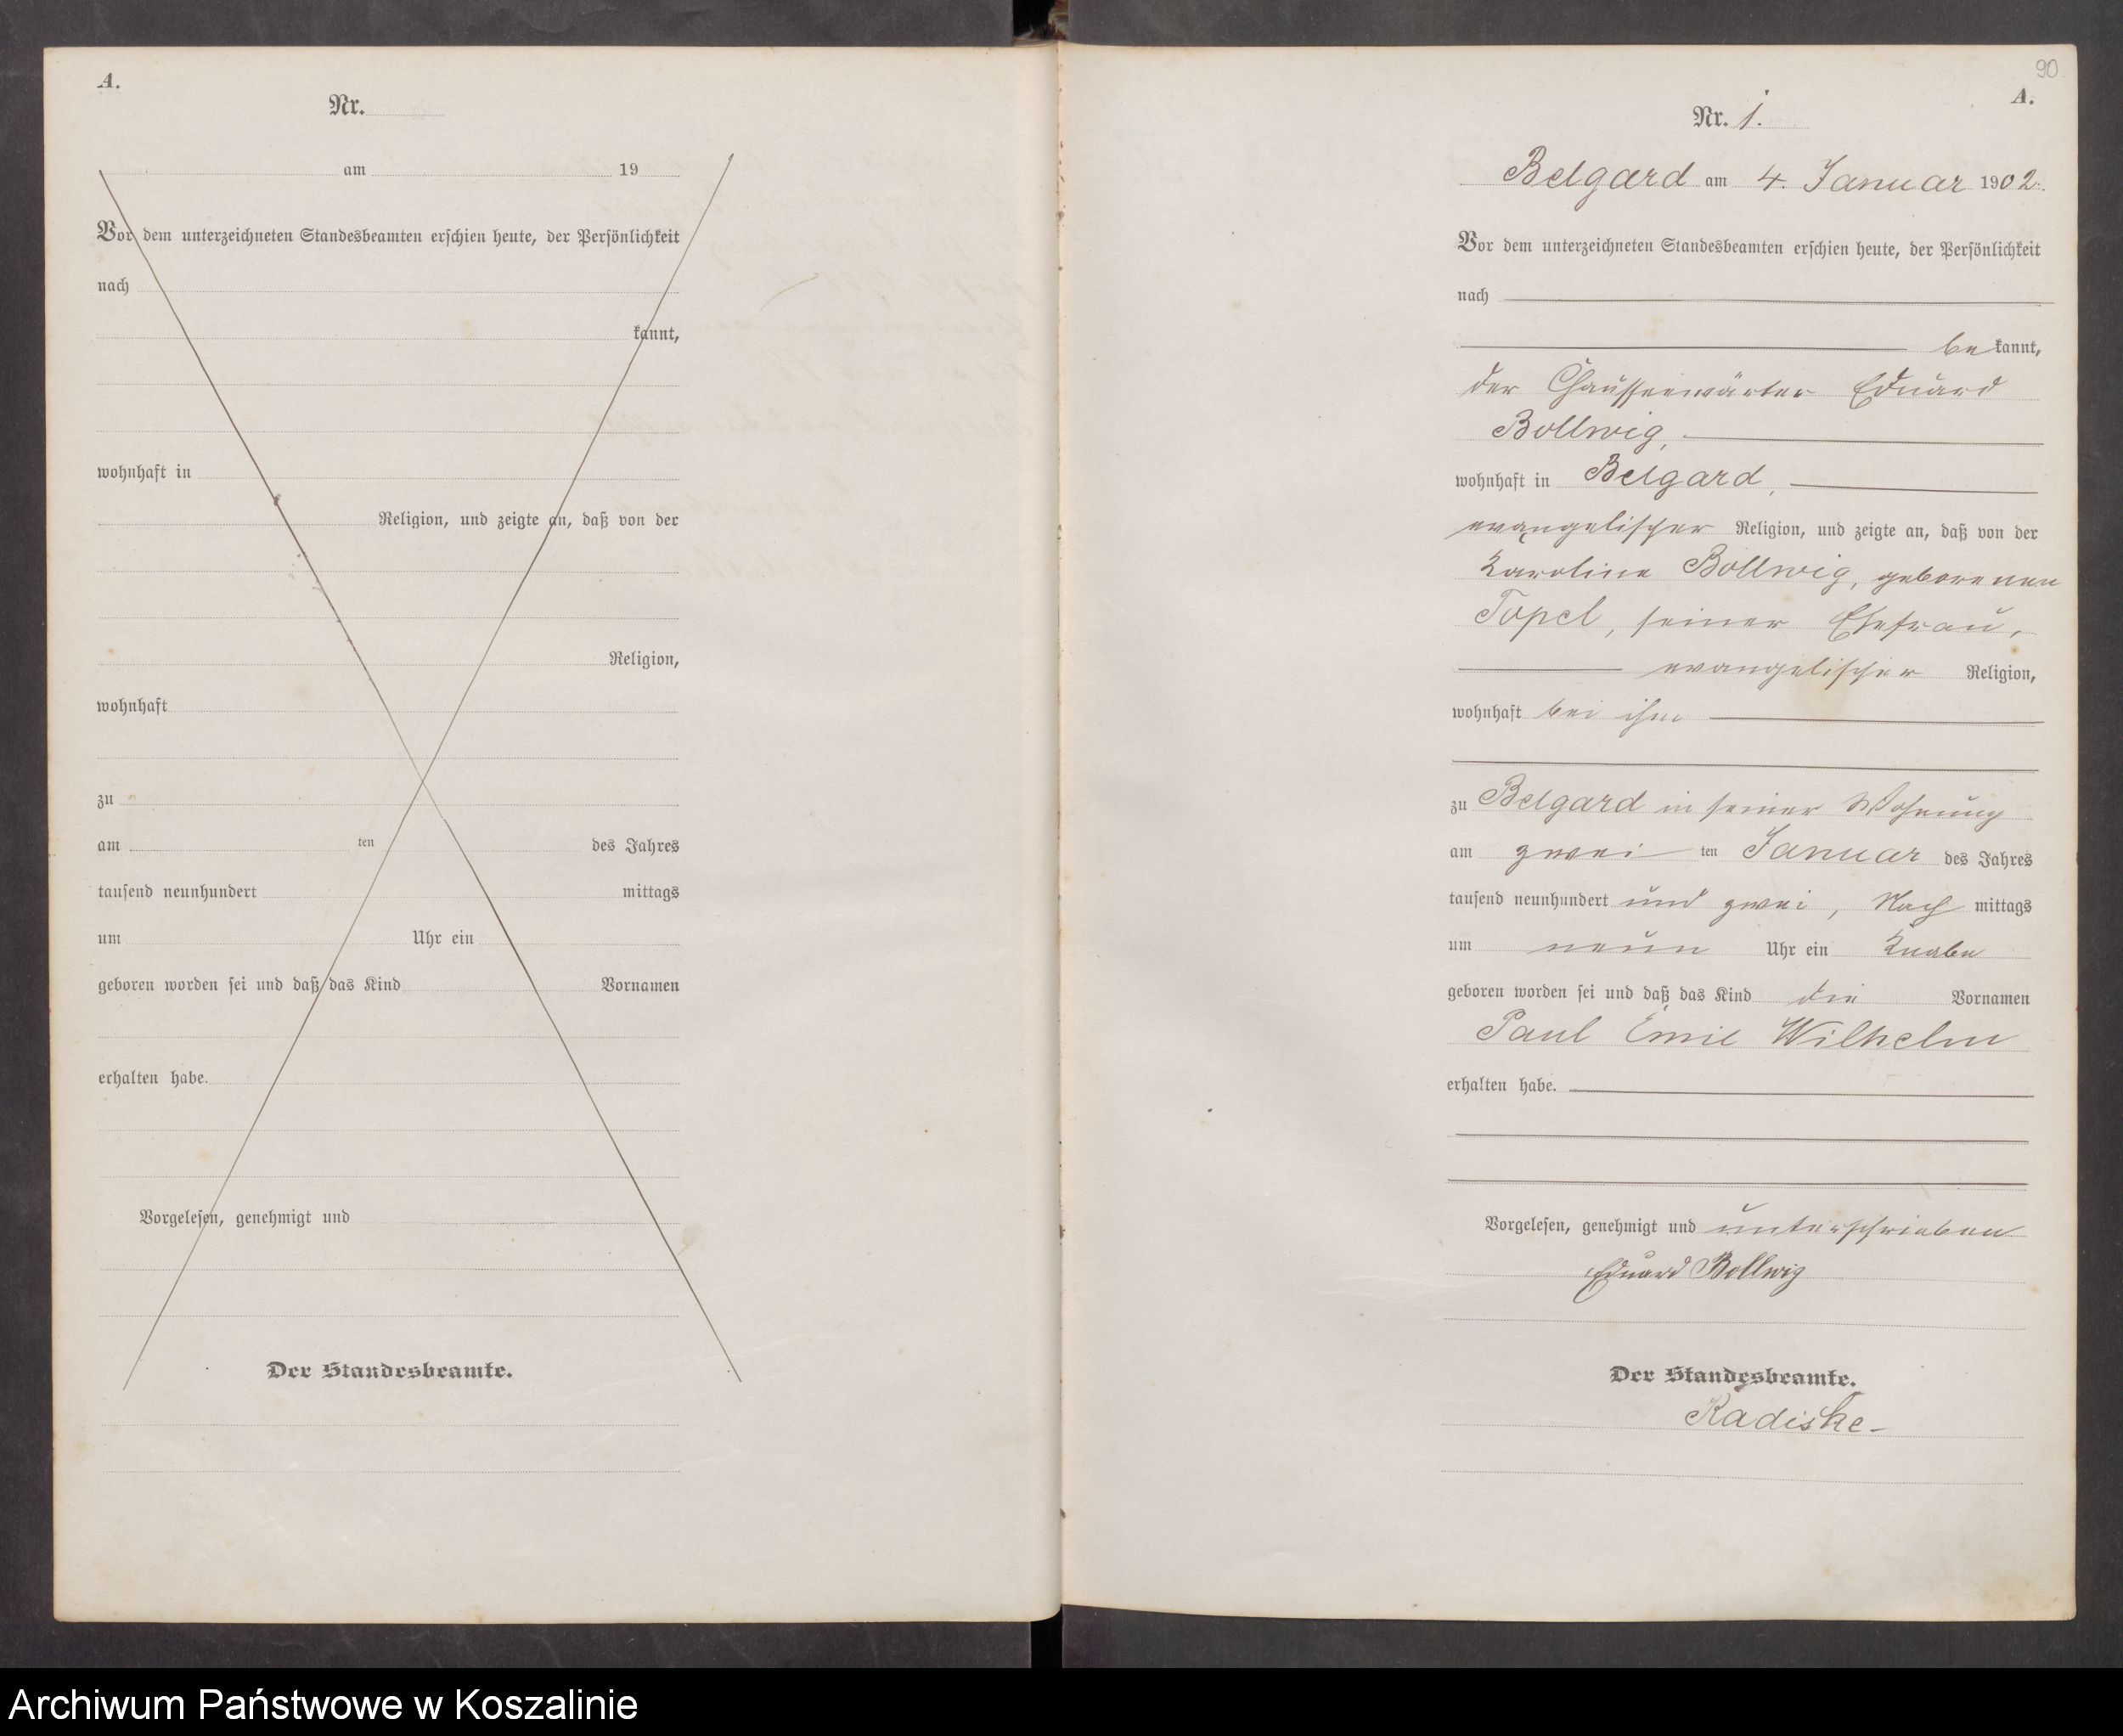 A.
Nr.
am 19
Vor dem unterzeichneten Standesbeamten erschien heute, der Persönlichkeit
nach
kannt,
wohnhaft in
Religion, und zeigte an, daß von der
Religion,
wohnhaft
zu
am ten des Jahres
tausend neunhundert mittags
um Uhr ein
geboren worden sei und daß das Kind Vornamen
erhalten habe.
Vorgelesen, genehmigt und
Der Standesbeamte.
90.
A.
Nr. 1.
Belgard am 4. Januar 1902.
Vor dem unterzeichneten Standesbeamten erschien heute, der Persönlichkeit
nach
bekannt,
der Chausseewärter Eduard
Bollwig,
wohnhaft in Belgard,
evangelischer Religion, und zeigte an, daß von der
Karoline Bollwig, geborenen
Topel, seiner Ehefrau,
evangelischer Religion,
wohnhaft bei ihm
zu Belgard in seiner Wohnung
am zwei ten Januar des Jahres
tausend neunhundert und zwei, Nach mittags
um neun Uhr ein Knabe
geboren worden sei und daß das Kind die Vornamen
Paul Emil Wilhelm
erhalten habe.
Vorgelesen, genehmigt und unterschrieben
Eduard Bollwig
Der Standesbeamte.
Radiske
Archiwum Państwowe w Koszalinie